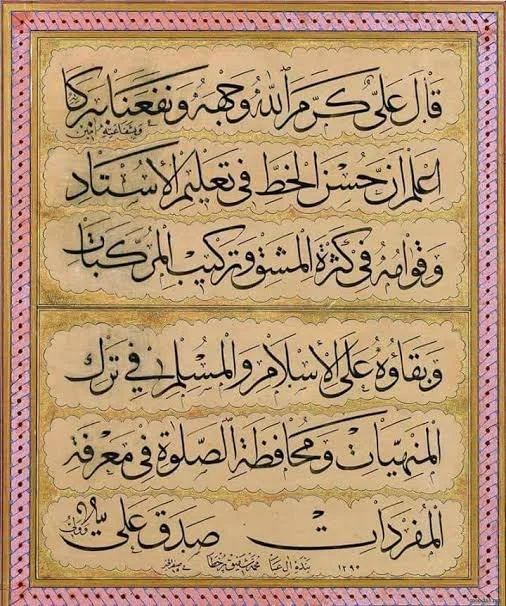 قال علي كرم الله وجهه ونفعنا ببركات
وبشفاعته آمين
اعلم ان حسن الخط في تعليم الاستاد
وقوامه في كثرة المشق وتركيب المركبات
وبقاؤه على الاسلام والمسلم في ترك
المنهيات ومحافظة الصلوة في معرفة
المفردات صدق علي
بنده آل عبا محمد شفيق
١٢٩٥